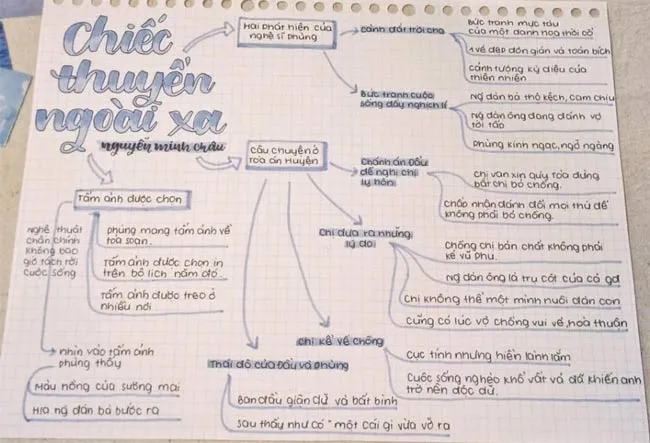 Chiếc
thuyền
ngoài xa
nguyễn minh châu
Hai phát hiện của
nghệ sĩ phùng
cảnh đất trời cho
Bức tranh mực tàu
của một danh hoạ thời cổ
1 vẻ đẹp đơn giản và toàn bích
cảnh tượng kỳ diệu của
thiên nhiên
Bức tranh cuộc
sống đầy nghịch lí
Ng đàn bà thô kệch, cam chịu
Ng đàn ông đang đánh vợ
tới tấp
phùng kinh ngạc, ngỡ ngàng
câu chuyện ở
toà án Huyện
chánh án Đẩu
đề nghị chị
ly hôn
chị van xin quý toà đừng
bắt chị bỏ chồng.
chấp nhận đánh đổi mọi thứ để
không phải bỏ chồng.
chị đưa ra những
lý do
chồng chị bản chất không phải
kẻ vũ phu.
Ng đàn ông là trụ cột của cả gđ
chị không thể một mình nuôi đàn con
cũng có lúc vợ chồng vui vẻ, hoà thuận
chị kể về chồng
cục tính nhưng hiền lành lắm
cuộc sống nghèo khổ vất vả đã khiến anh
trở nên độc dữ.
Thái độ của Đẩu và phùng
Ban đầu giận dữ và bất bình
sau thấy như có "một cái gì vừa vỡ ra
Tấm ảnh được chọn
phùng mang tấm ảnh về
toà soạn.
Tấm ảnh được chọn in
trên bộ lịch năm đó.
Tấm ảnh được treo ở
nhiều nơi
nghệ thuật
chân chính
không bao
giờ tách rời
cuộc sống
nhìn vào tấm ảnh
phùng thấy
Màu hồng của sương mai
H/a ng đàn bà bước ra